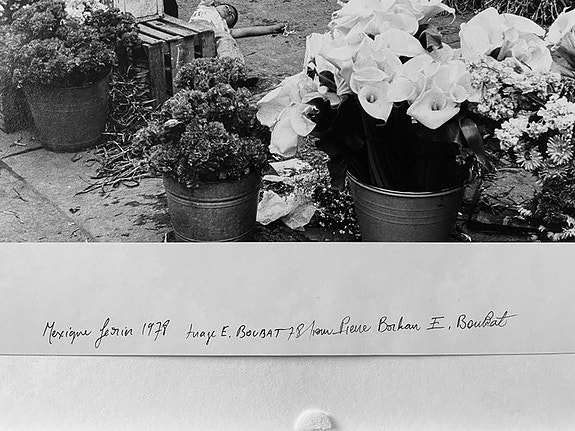 Mexique février 1978 tirage E. BOUBAT 78 pour Pierre Borhan E. BouBat